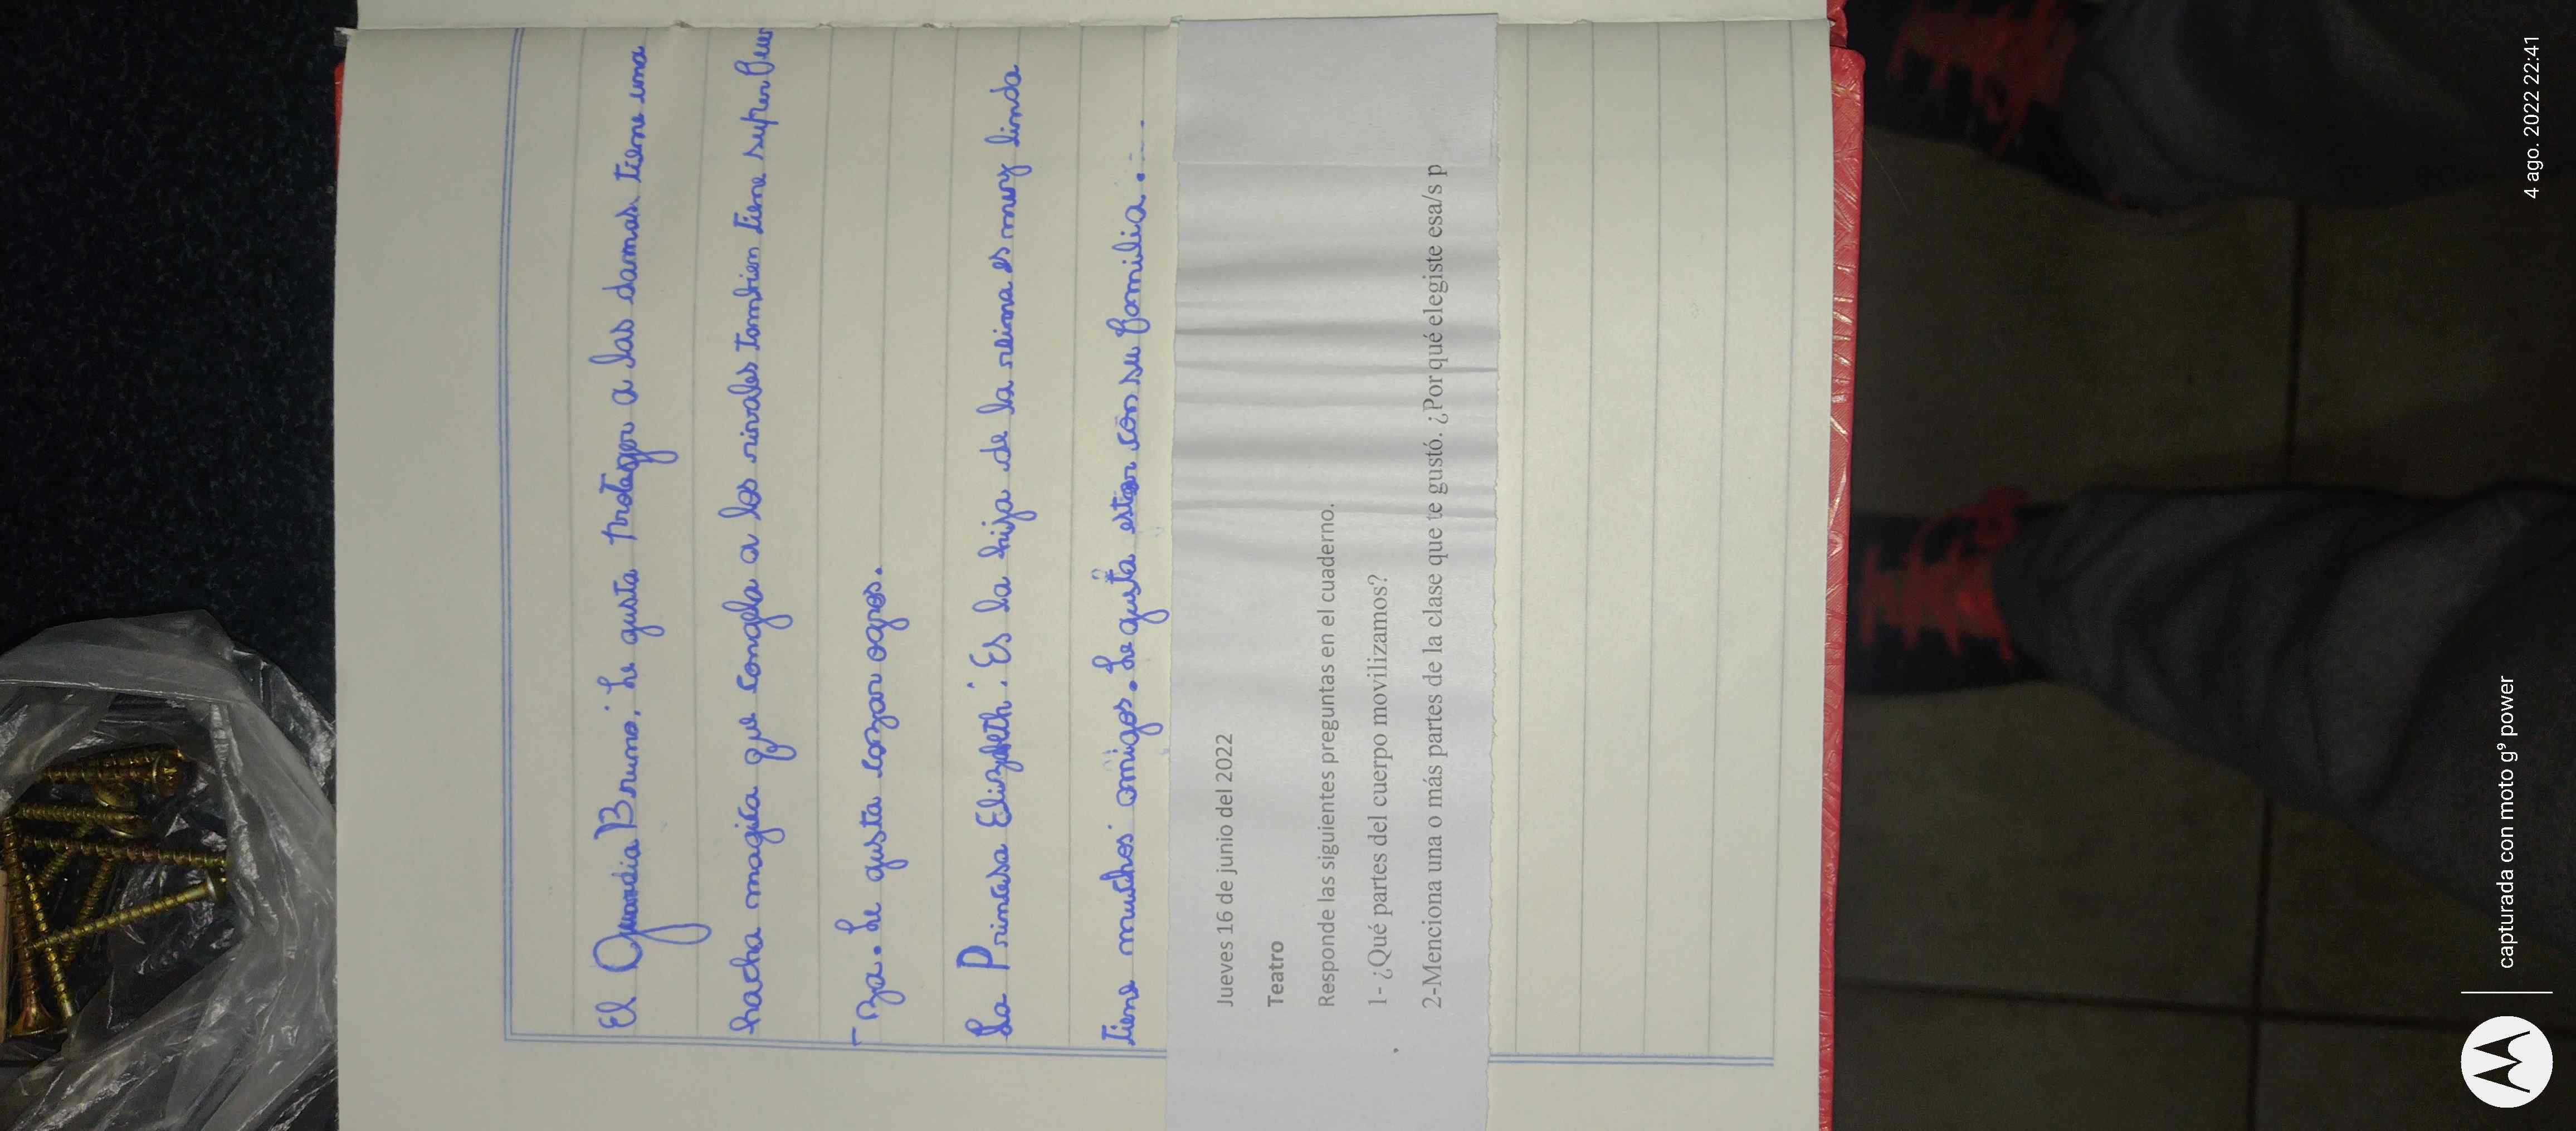 El Guardia Bruno: Le gusta Proteger a las damas. tiene una
hacha magica que congela a los rivales tambien tiene super fuer
- za. Le gusta cazar ogros.
La Princesa Elizabeth: Es la hija de la reina es muy linda
tiene muchos amigos. Le gusta estar con su familia.
Jueves 16 de junio del 2022
Teatro
Responde las siguientes preguntas en el cuaderno.
1- ¿Qué partes del cuerpo movilizamos?
2-Menciona una o más partes de la clase que te gustó. ¿Por qué elegiste esa/s p
capturada con moto g⁹ power
4 ago. 2022 22:41